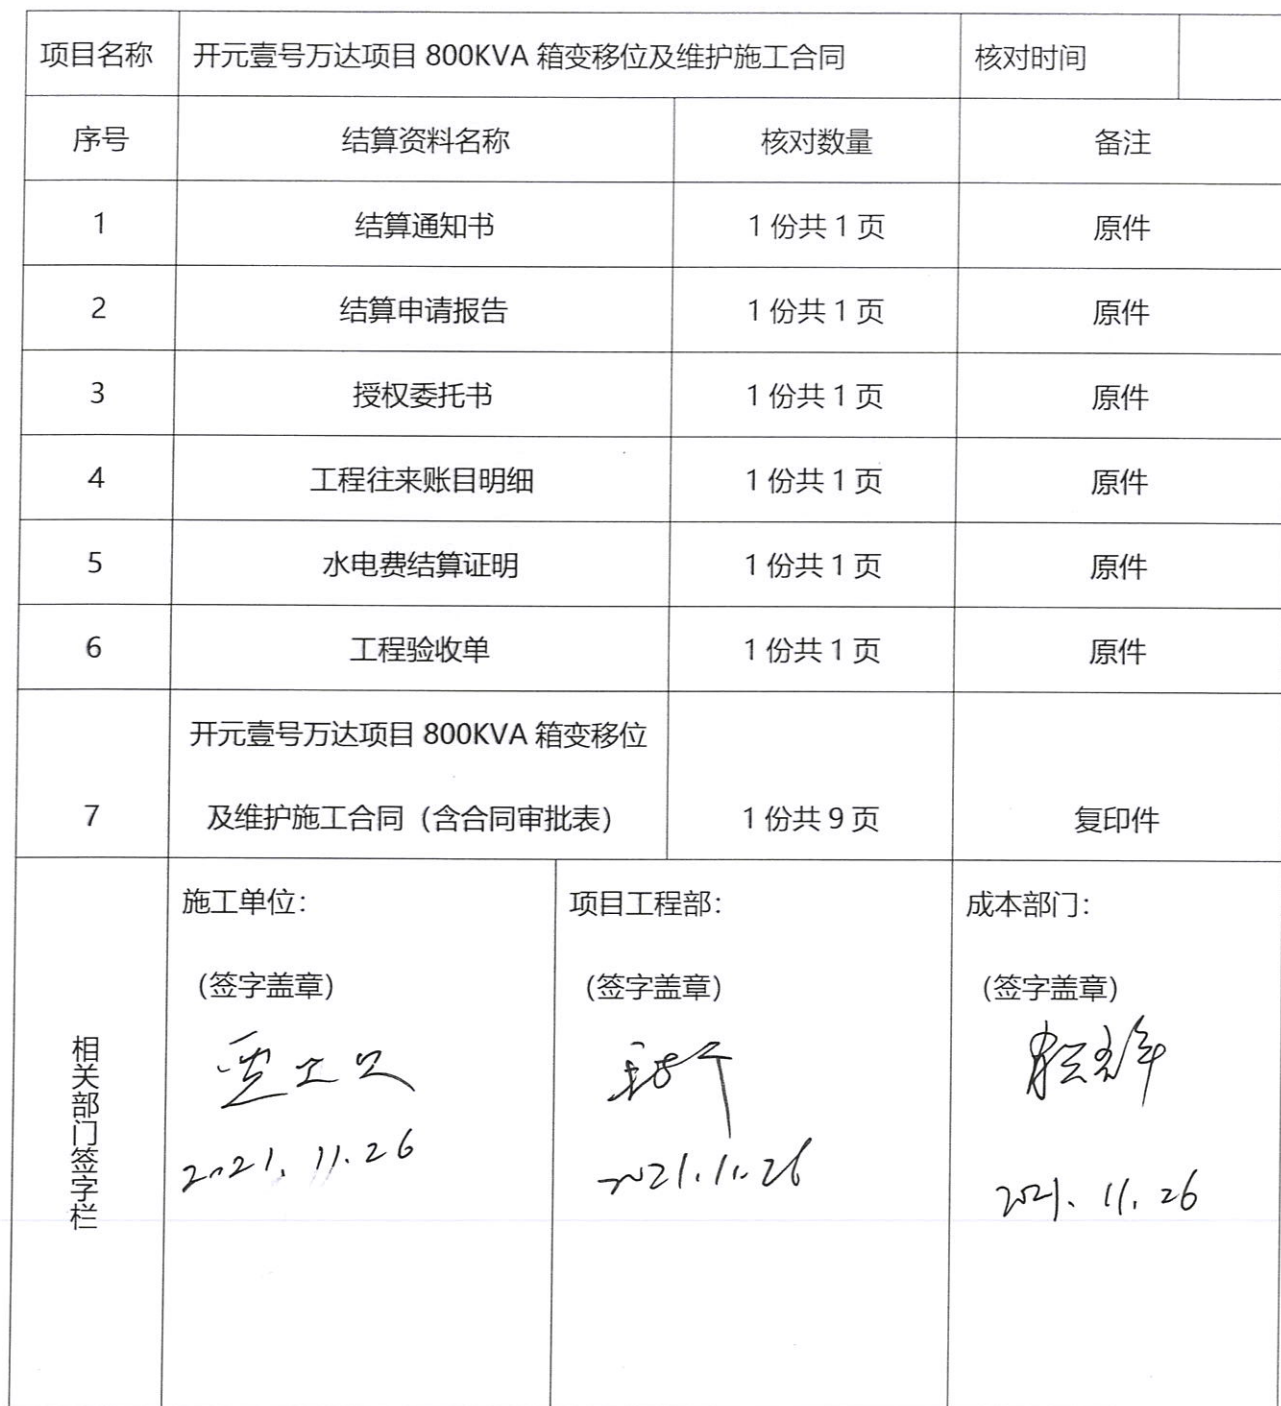 项目名称 开元壹号万达项目 800KVA 箱变移位及维护施工合同 核对时间
序号 结算资料名称 核对数量 备注
1 结算通知书 1 份共 1 页 原件
2 结算申请报告 1 份共 1 页 原件
3 授权委托书 1 份共 1 页 原件
4 工程往来账目明细 1 份共 1 页 原件
5 水电费结算证明 1 份共 1 页 原件
6 工程验收单 1 份共 1 页 原件
开元壹号万达项目 800KVA 箱变移位
7 及维护施工合同（含合同审批表） 1 份共 9 页 复印件
相关部门签字栏
施工单位：
（签字盖章）
2021.11.26
项目工程部：
（签字盖章）
2021.11.26
成本部门：
（签字盖章）
2021.11.26